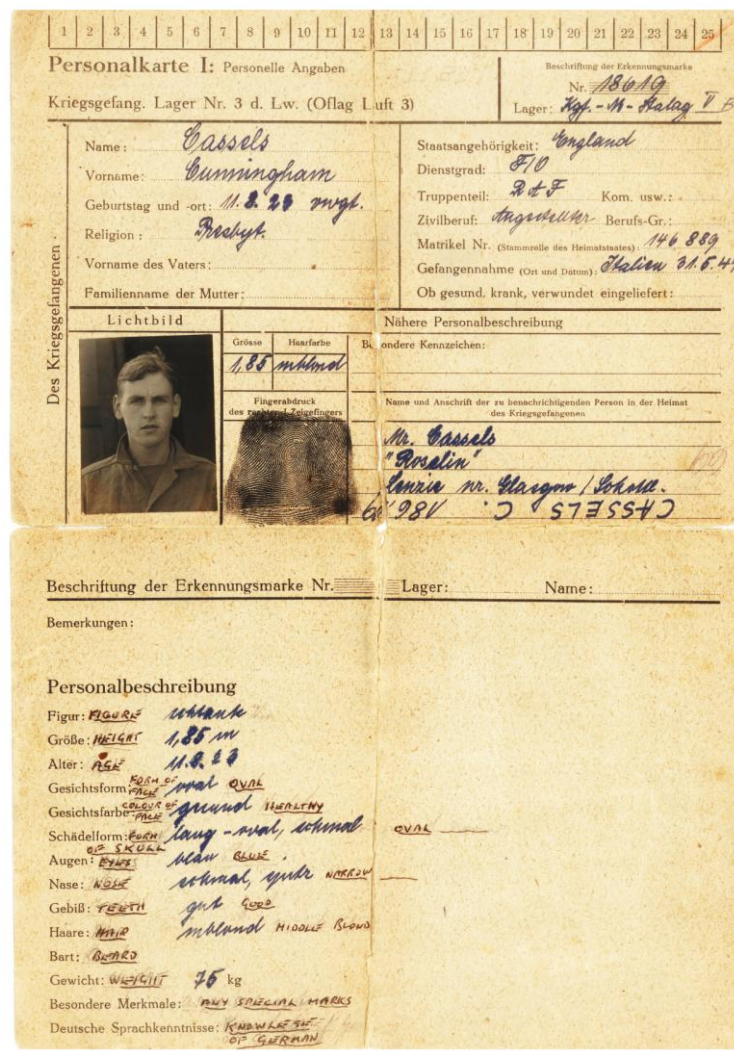 1 2 3 4 5 6 7 8 9 10 11 12 13 14 15 16 17 18 19 20 21 22 23 24 25
Personalkarte I: Personelle Angaben
Kriegsgefang. Lager Nr. 3 d. Lw. (Oflag Luft 3)
Beschriftung der Erkennungsmarke
Nr. 18619
Lager: Kgf.-M-Stalag V B
Des Kriegsgefangenen
Name: Cassels
Vorname: Cunningham
Geburtstag und -ort: 11.8.23
Religion: Presbyt.
Vorname des Vaters:
Familienname der Mutter:
Staatsangehörigkeit: England
Dienstgrad: F/O
Truppenteil: RAF Kom. usw.:
Zivilberuf: Angestellter Berufs-Gr.:
Matrikel Nr. (Stammrolle des Heimatstaates): 146 889
Gefangennahme (Ort und Datum): Italien 31.5.44
Ob gesund, krank, verwundet eingeliefert:
Lichtbild
Grösse Haarfarbe
1,85 mblond
Fingerabdruck
des rechten Zeigefingers
Nähere Personalbeschreibung
Besondere Kennzeichen:
Name und Anschrift der zu benachrichtigenden Person in der Heimat
des Kriegsgefangenen
Mr. Cassels
"Roselin"
Lenzie nr. Glasgow /
CASSELS C. 18619
Beschriftung der Erkennungsmarke Nr. Lager: Name:
Bemerkungen:
Personalbeschreibung
Figur: FIGURE schlank
Größe: HEIGHT 1,85 m
Alter: AGE 11.8.23
Gesichtsform: FORM OF FACE oval OVAL
Gesichtsfarbe: COLOUR OF FACE gesund HEALTHY
Schädelform: FORM OF SKULL lang-oval, schmal OVAL
Augen: EYES blau BLUE
Nase: NOSE schmal, spitz NARROW
Gebiß: TEETH gut GOOD
Haare: HAIR mblond MIDDLE BLOND
Bart: BEARD
Gewicht: WEIGHT 75 kg
Besondere Merkmale: ANY SPECIAL MARKS
Deutsche Sprachkenntnisse: KNOWLEDGE
OF GERMAN